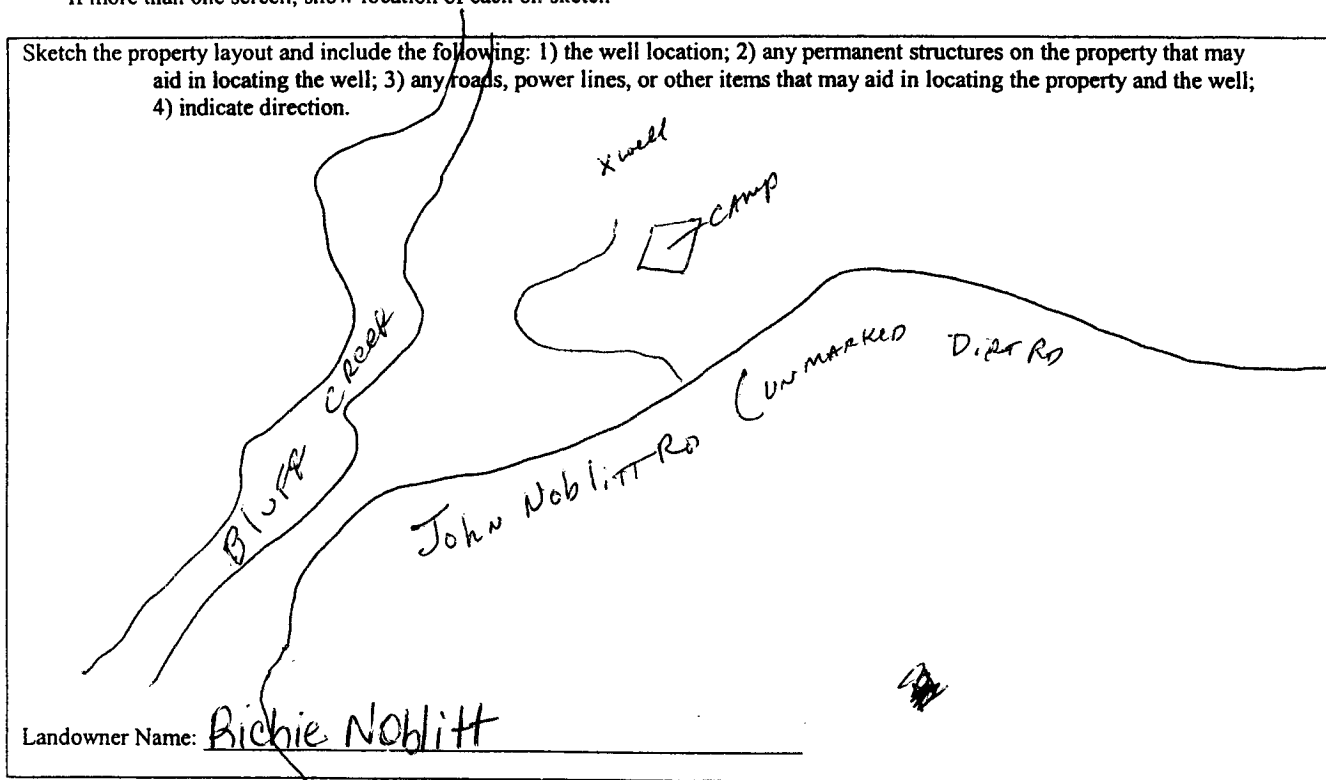 If more than one screen, show location of each on sketch
Sketch the property layout and include the following: 1) the well location; 2) any permanent structures on the property that may
aid in locating the well; 3) any roads, power lines, or other items that may aid in locating the property and the well;
4) indicate direction.
x well
CAMP
CREEK
BLUFF
(UNMARKED DIRT RD
John Noblitt RD
Landowner Name: Richie Noblitt